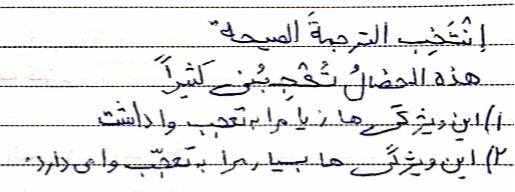 اِنْتَخِب الترجمةَ الصیحه"
هذه الخصالُ تُعْجِبُنی کثیراً
۱) این ویژگی ها زیا مرا به تعجب وا داشت
۲) این ویژگی ها بسیار مرا به تعجّب وا می دارد.